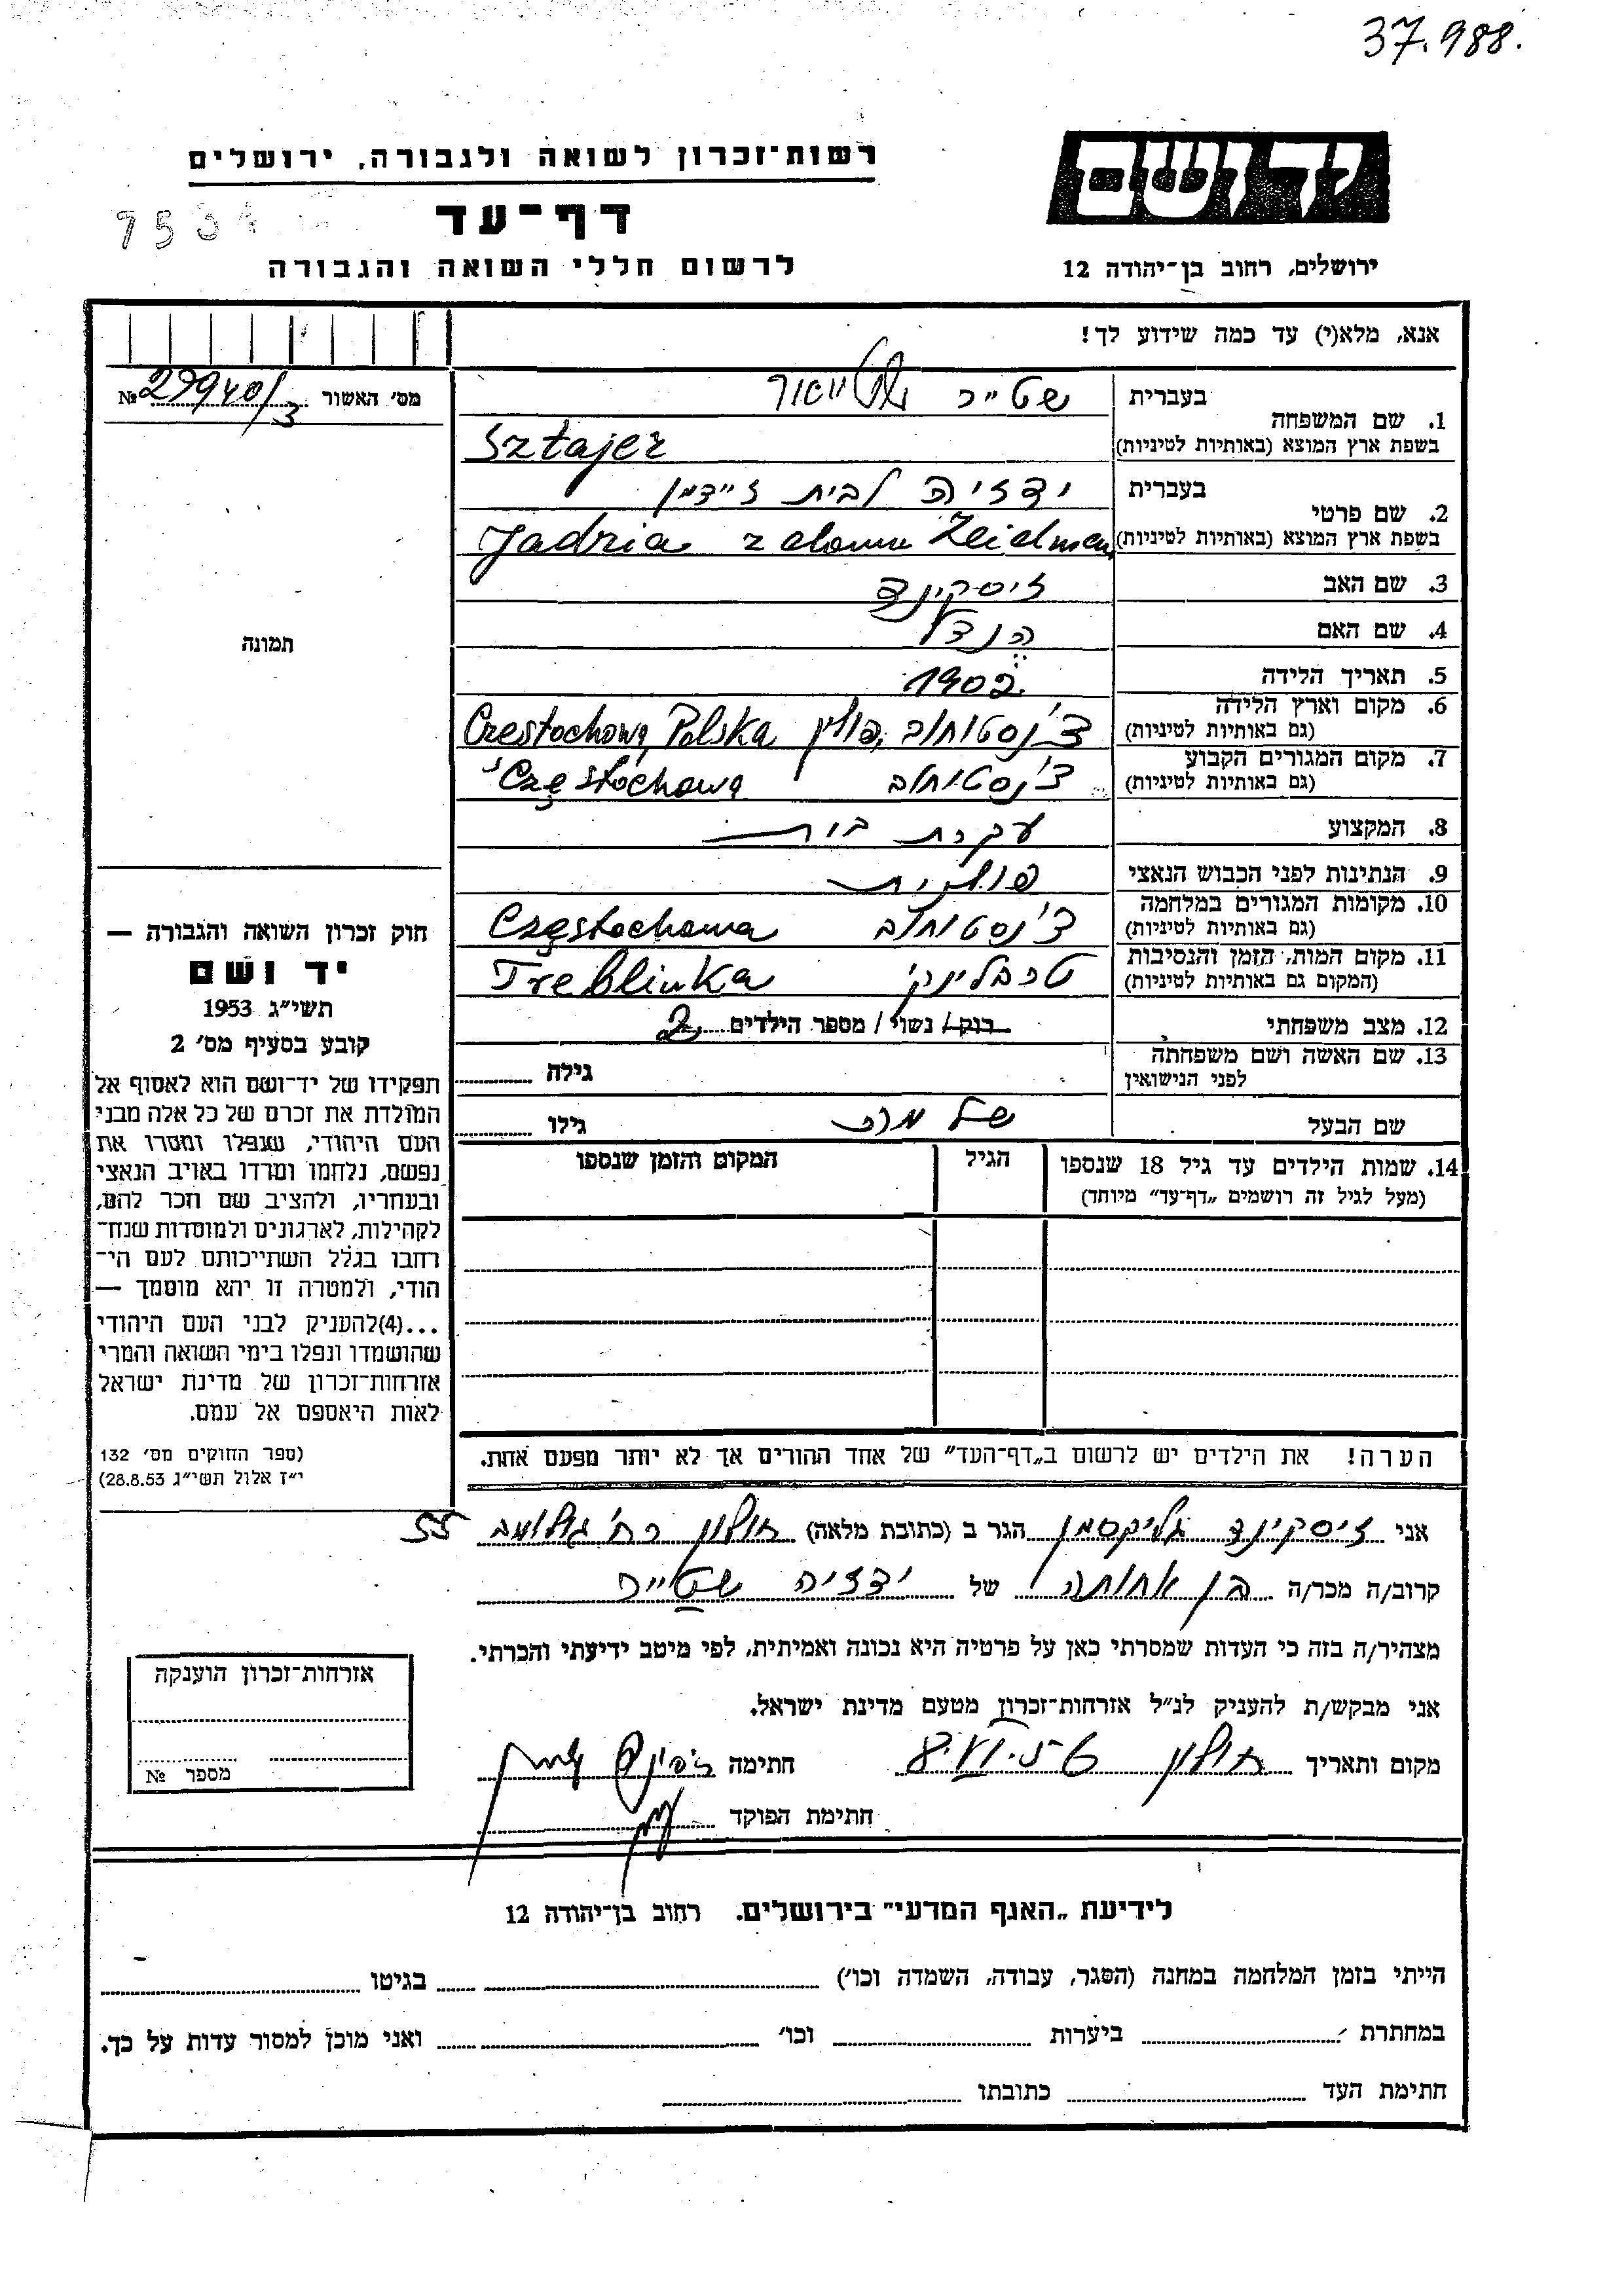 37.988.
רשות־זכרון לשואה ולגבורה, ירושלים
יד ושם
דף־עד
לרשום חללי השואה והגבורה
ירושלים, רחוב בן־יהודה 12
אנא, מלא(י) עד כמה שידוע לך!
מס׳ האשור № 29940/3
1. שם המשפחה בעברית שטייר
בשפת ארץ המוצא (באותיות לטיניות) Sztajer
2. שם פרטי בעברית ידזיה לבית זיידמן
בשפת ארץ המוצא (באותיות לטיניות) Jadzia z domu Zeidman
3. שם האב זיסקינד
4. שם האם הנדל
5. תאריך הלידה 1902
6. מקום וארץ הלידה (גם באותיות לטיניות) צ׳נסטוחוב, פולין Czestochowa, Polska
7. מקום המגורים הקבוע (גם באותיות לטיניות) צ׳נסטוחוב Częstochowa
8. המקצוע עקרת בית
9. הנתינות לפני הכבוש הנאצי פולנית
10. מקומות המגורים במלחמה (גם באותיות לטיניות) צ׳נסטוחוב Częstochowa
11. מקום המות, הזמן והנסיבות (המקום גם באותיות לטיניות) טרבלינקי Treblinka
12. מצב משפחתי רוק / נשוי / מספר הילדים 2
13. שם האשה ושם משפחתה לפני הנישואין גילה
שם הבעל גילו
14. שמות הילדים עד גיל 18 שנספו הגיל המקום והזמן שנספו
(מעל לגיל זה רושמים „דף־עד״ מיוחד)
הערה! את הילדים יש לרשום ב„דף־העד״ של אחד ההורים אך לא יותר מפעם אחת.
תמונה
חוק זכרון השואה והגבורה —
יד ושם
תשי״ג 1953
קובע בסעיף מס׳ 2
תפקידו של יד־ושם הוא לאסוף אל
המולדת את זכרם של כל אלה מבני
העם היהודי, שנפלו ומסרו את
נפשם, נלחמו ומרדו באויב הנאצי
ובעוזריו, ולהציב שם וזכר להם,
לקהילות, לארגונים ולמוסדות שנח־
רבו בגלל השתייכותם לעם הי־
הודי, ולמטרה זו יהא מוסמך —
...(4)להעניק לבני העם היהודי
שהושמדו ונפלו בימי השואה והמרי
אזרחות־זכרון של מדינת ישראל
לאות היאספם אל עמם.
(ספר החוקים מס׳ 132
י״ז אלול תשי״ג 28.8.53)
אני זיסקינד גליקסמן הגר ב (כתובת מלאה) חולון רח׳ 55
קרוב/ה מכר/ה בן אחותה של ידזיה שטייר
מצהיר/ה בזה כי העדות שמסרתי כאן על פרטיה היא נכונה ואמיתית, לפי מיטב ידיעתי והכרתי.
אני מבקש/ת להעניק לנ״ל אזרחות־זכרון מטעם מדינת ישראל.
מקום ותאריך חולון חתימה
חתימת הפוקד
אזרחות־זכרון הוענקה
מספר №
לידיעת „האגף המדעי״ בירושלים. רחוב בן־יהודה 12
הייתי בזמן המלחמה במחנה (הסגר, עבודה, השמדה וכו׳) בגיטו
במחתרת ביערות וכו׳ ואני מוכן למסור עדות על כך.
חתימת העד כתובתו